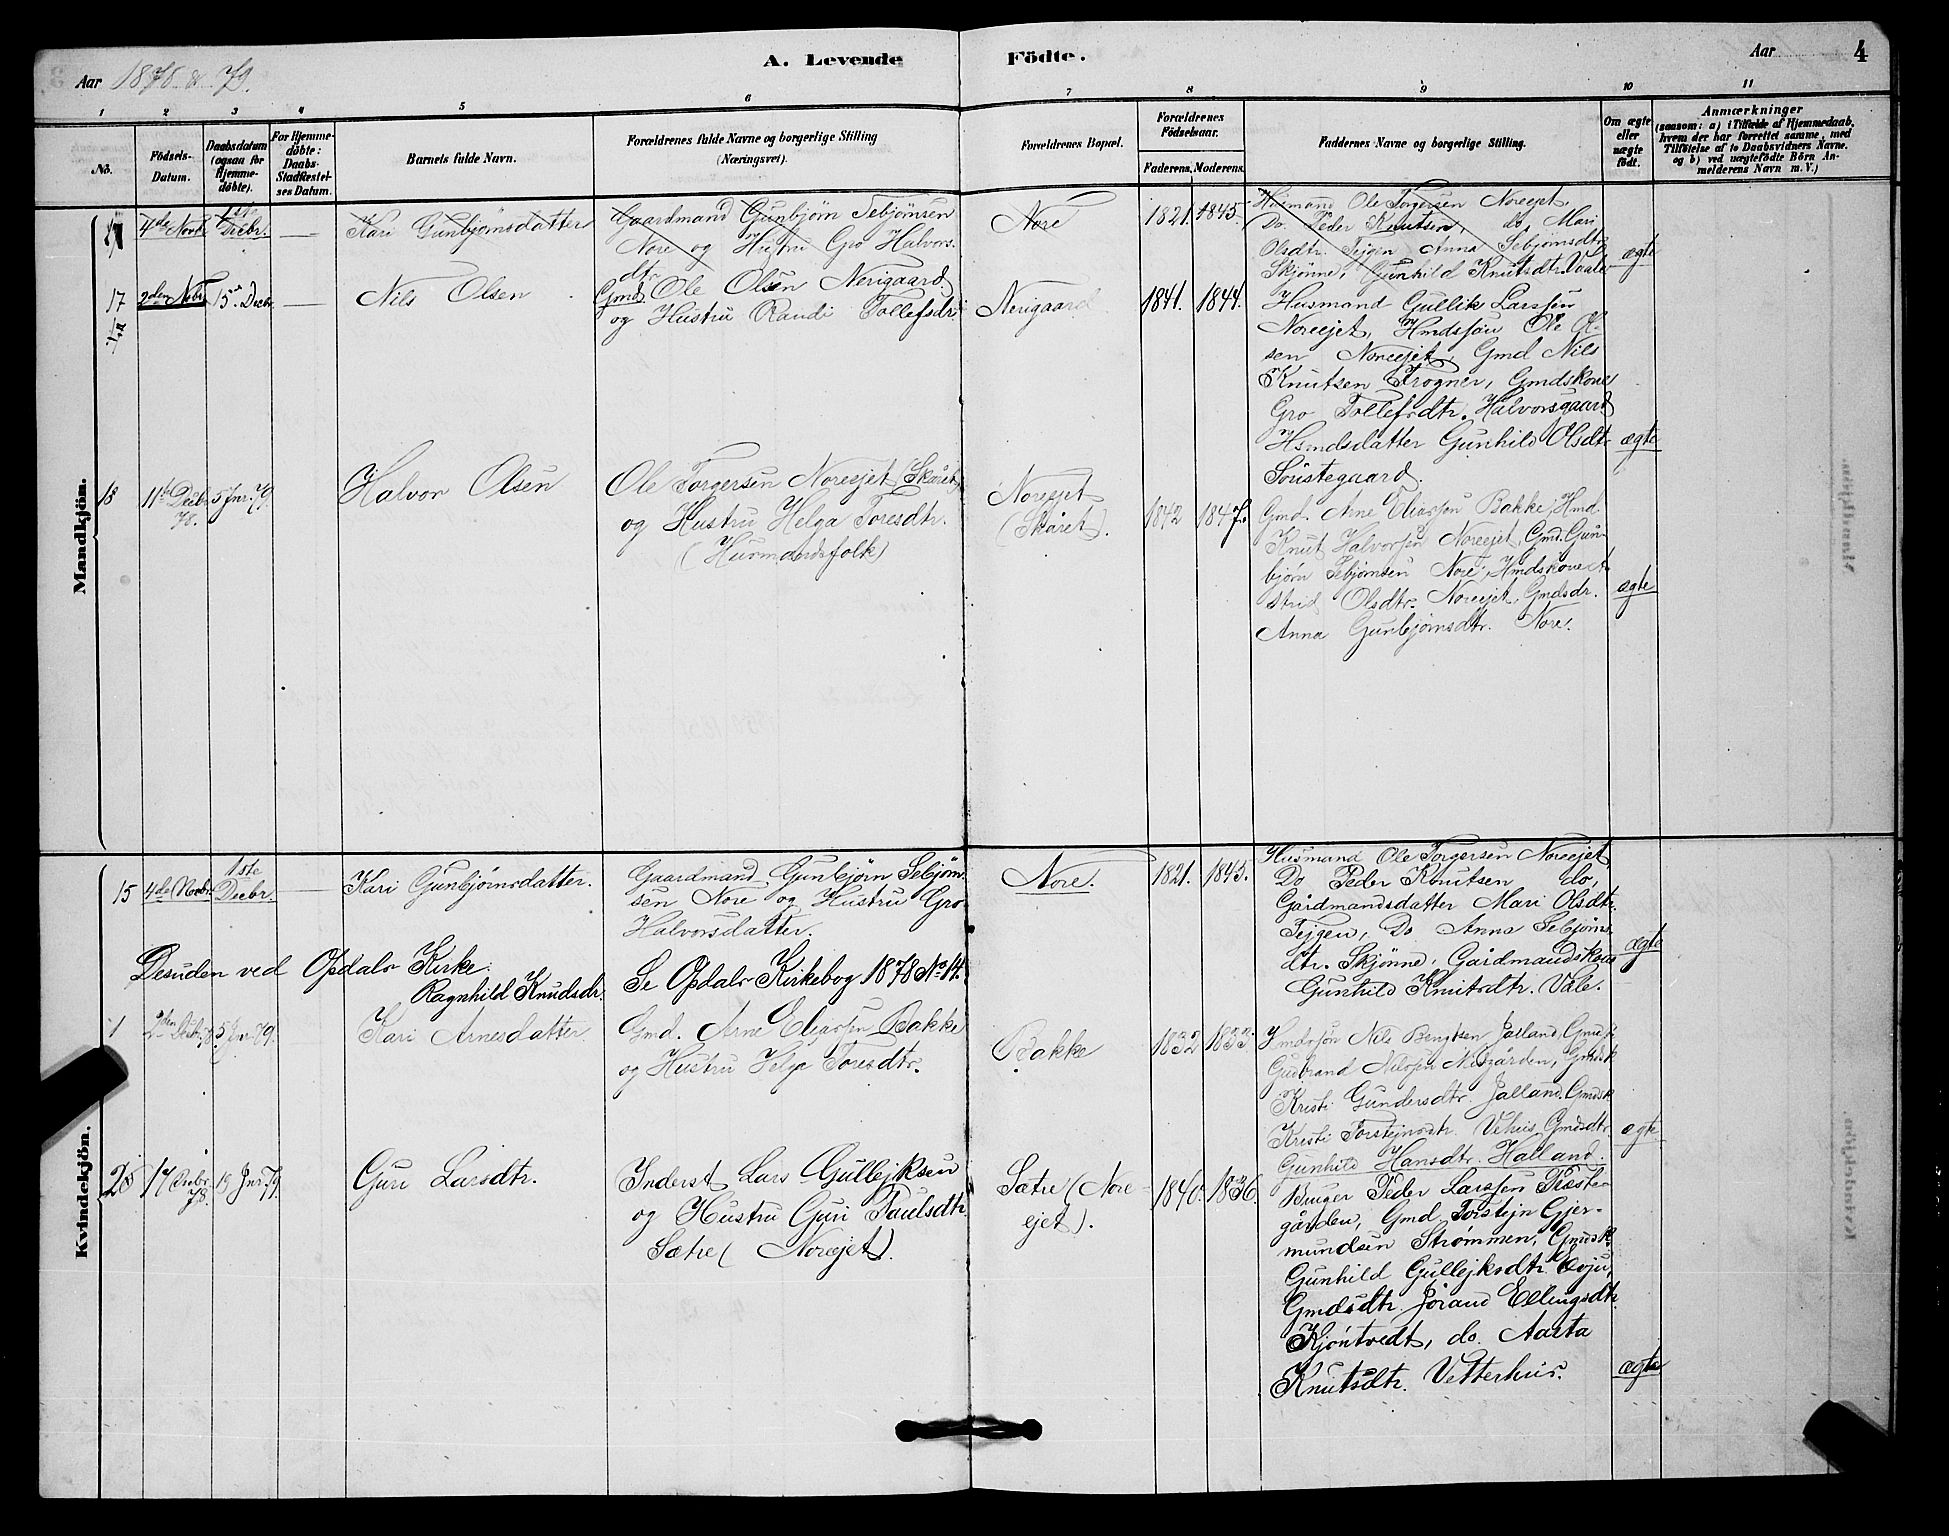 Aar 1878 & 79.
A. Levende
Födte.
Aar
4
1 2 3 4 5 6 7 8 9 10 11
No.
Födsels-
Datum.
Daabsdatum
(ogsaa for
Hjemme-
döbte).
For Hjemme-
döbte:
Daabs-
Stadfæstel-
ses Datum.
Barnets fulde Navn.
Forældrenes fulde Navne og borgerlige Stilling
(Næringsvei).
Forældrenes Bopæl.
Forældrenes
Födselsaar.
Faderens. Moderens.
Faddernes Navne og borgerlige Stilling.
Om ægte
eller
uægte
födt.
Anmærkninger
(saasom: a) i Tilfælde af Hjemmedaab,
hvem der har forrettet samme, med
Tilföielse af to Daabsvidners Navne.
og b) ved uægtefödte Börn An-
melderens Navn m. V.)
Mandkjön.
4de Novbr
1ste
Decbr.
Kari Gunbjørnsdatter
Gaardmand Gunbjørn Sebjørnsen
Nore og Hustru Gro Halvors-
dtr
Nore
1821. 1845.
Husmand Ole Torgersen Noreejet,
Do. Peder Knutsen, do, Mari
Olsdtr. Tejgen Anna Sebjørnsdtr
Skjønne, Gunhild Knutsdtr. Vaale
ægte
17
2den Nobr
15. Decbr
Nils Olsen
Gmd Ole Olsen Nerigaard
og Hustru Randi Tollefsdr.
Nerigaard
1841. 1844.
Husmand Gullik Larssen
Noreejet, Hmdssøn Ole Ol-
sen Noreejet, Gmd Nils
Knutsen Frogner, Gmdskone
Gro Tollefsdtr. Halvorsgaard
Hsmdsdatter Gunhild Olsdt
Sönstegaard.
ægte
18
11te Decbr
78.
5 Jnr. 79.
Halvor Olsen
Ole Torgersen Noreejet (Skåret)
og Hustru Helga Toresdtr.
(Husmandsfolk)
Noreejet
(Skåret).
1842 1847.
Gmd. Arne Eliassen Bakke, Hmd.
Knut Halvorsen Noreejet, Gmd. Gun-
bjørn Sebjørnsen Nore, Hmdskone A-
strid Olsdtr. Noreejet, Gmdsdr.
Anna Gunbjørnsdtr. Nore.
ægte
Kvindekjön.
15
4de Novbr
1ste
Decbr.
Kari Gunbjørnsdatter.
Gaardmand Gunbjørn Sebjørn-
sen Nore og Hustru Gro
Halvorsdatter.
Nore.
1821. 1845.
Husmand Ole Torgersen Noreejet,
Do Peder Knutsen do,
Gårdmandsdatter Mari Olsdtr.
Tejgen, Do Anna Sebjørns-
dtr. Skjønne, Gårdmandskone
Gunhild Knutsdtr. Våle.
ægte
Desuden ved Opdals Kirke:
Ragnhild Knudsdr.
Se Opdals Kirkebog 1878 No 14.
1
2den Decbr 78
5 Jnr. 79.
Kari Arnesdatter
Gmd. Arne Eliassen Bakke
og Hustru Helga Toresdtr.
Bakke
1832 1833.
Gmdssøn Nils Bengtsen Jalland, Gmd
Gudbrand Nilssen Midgården, Gmdsk
Kristi Gundersdtr. Jalland, Gmdsk
Kristi Torstejnsdtr. Vehus, Gmdsdtr.
Gunhild Hansdtr. Halland.
ægte
2
17 Decbr.
78.
19 Jnr. 79
Guri Larsdtr.
Inderst Lars Gullejksen
og Hustru Guri Paulsdtr.
Sætre (Noreejet).
Sætre (Nore-
ejet).
1840. 1836.
Bruger Peder Larssen Præste-
gården, Gmd. Torstejn Gjer-
mundsen Strømmen, Gmdsk.
Gunhild Gullejksdtr. Evju,
Gmdsdtr. Jórand Ellingsdtr.
Kjöntvedt, do. Aasta
Knutsdtr. Vetterhus.
ægte